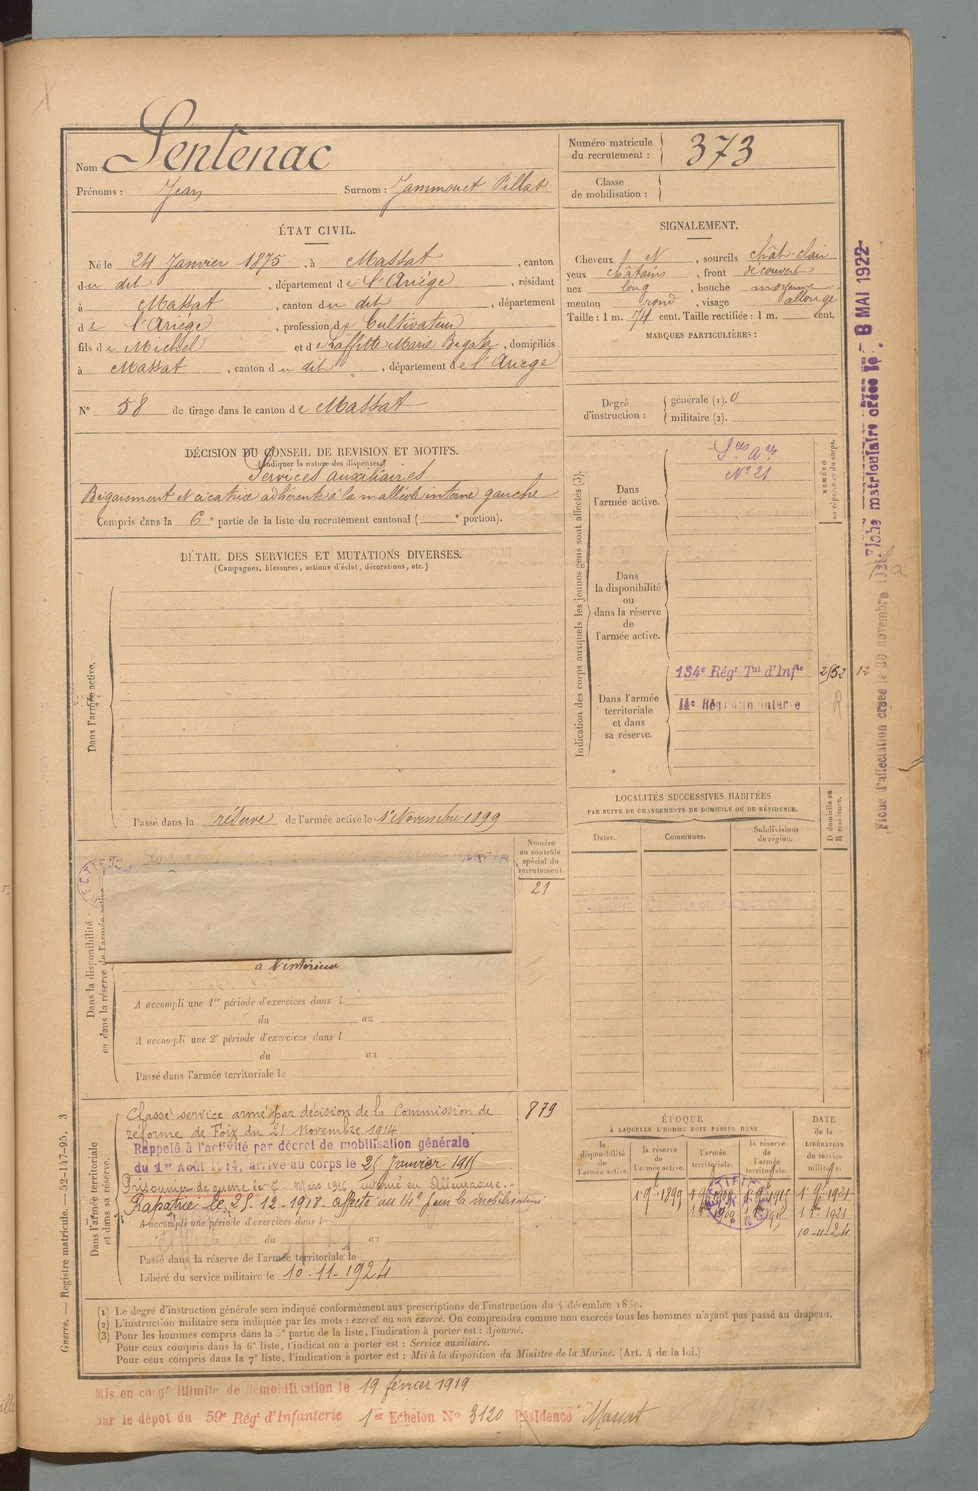 Nom : Sentenac
Prénoms : Jean Surnom : Jammouet Pillat
Numéro matricule du recrutement : 373
Classe de mobilisation :
ÉTAT CIVIL.
Né le 24 Janvier 1875, à Massat, canton
du dit, département de l'Ariège, résidant
à Massat, canton du dit, département
de l'Ariège, profession de Cultivateur
fils de Michel et de Laffitte Marie Bégate, domiciliés
à Massat, canton du dit, département de l'Ariège
N° 58 de tirage dans le canton de Massat
SIGNALEMENT.
Cheveux et N, sourcils chât-clair
yeux châtains, front découvert
nez long, bouche moyenne
menton rond, visage allongé
Taille : 1 m. 74 cent. Taille rectifiée : 1 m. cent.
MARQUES PARTICULIÈRES :
Degré d'instruction : générale (1). 0
militaire (2).
DÉCISION DU CONSEIL DE REVISION ET MOTIFS.
(Indiquer la nature des dispenses)
Services auxiliaires
Bégaiement et cicatrice adhérente à la malléole interne gauche
Compris dans la 6e partie de la liste du recrutement cantonal ( e portion).
DÉTAIL DES SERVICES ET MUTATIONS DIVERSES.
(Campagnes, blessures, actions d'éclat, décorations, etc.)
Dans l'armée active.
Passé dans la réserve de l'armée active le 1er Novembre 1899
Indication des corps auxquels les jeunes gens sont affectés (3).
NUMÉRO au répertoire du corps.
Dans l'armée active.
Sces Ares
N° 21
Dans la disponibilité ou dans la réserve de l'armée active.
Dans l'armée territoriale et dans sa réserve.
134e Régt Tal d'Infie 2/52 12
14e Régt d'Infanterie
LOCALITÉS SUCCESSIVES HABITÉES
PAR SUITE DE CHANGEMENTS DE DOMICILE OU DE RÉSIDENCE.
D domicile ou R résidence.
Dates. Communes. Subdivisions de région.
Numéro au contrôle spécial du recrutement.
21
Dans la disponibilité ou dans la réserve de l'armée active.
à l'intérieur
A accompli une 1re période d'exercices dans l
du au
A accompli une 2e période d'exercices dans l
du au
Passé dans l'armée territoriale le
Dans l'armée territoriale et dans sa réserve.
Classé service armé par décision de la Commission de 879
réforme de Foix du 21 Novembre 1914
Rappelé à l'activité par décret de mobilisation générale
du 1er Août 1914, arrive au corps le 25 Janvier 1915
Prisonnier de guerre le 7 Mars 1916 interné en Allemagne.
Rapatrié le 25.12.1918 affecté au 14e pour la mobilisation
A accompli une période d'exercices dans l
du au
Passé dans la réserve de l'armée territoriale le
Libéré du service militaire le 10-11-1924
ÉPOQUE
À LAQUELLE L'HOMME DOIT PASSER DANS
la disponibilité de l'armée active. la réserve de l'armée active. l'armée territoriale. la réserve de l'armée territoriale. DATE de la LIBÉRATION du service militaire.
1 9bre 1899
10-11-24
(1) Le degré d'instruction générale sera indiqué conformément aux prescriptions de l'instruction du 4 décembre 1889.
(2) L'instruction militaire sera indiquée par les mots : exercé ou non exercé. On comprendra comme non exercés tous les hommes n'ayant pas passé au drapeau.
(3) Pour les hommes compris dans la 5e partie de la liste, l'indication à porter est : Ajourné.
Pour ceux compris dans la 6e liste, l'indication à porter est : Service auxiliaire.
Pour ceux compris dans la 7e liste, l'indication à porter est : Mis à la disposition du Ministre de la Marine. (Art. 4 de la loi.)
Mis en congé illimité de démobilisation le 19 février 1919
par le dépôt du 59e Régt d'Infanterie 1er Echelon N° 3120 Résidence Massat
Guerre. — Registre matricule. — 52-147-95. 3
Fiche matriculaire créée le 8 MAI 1922
Fiche d'affectation créée le 30 novembre 1921.